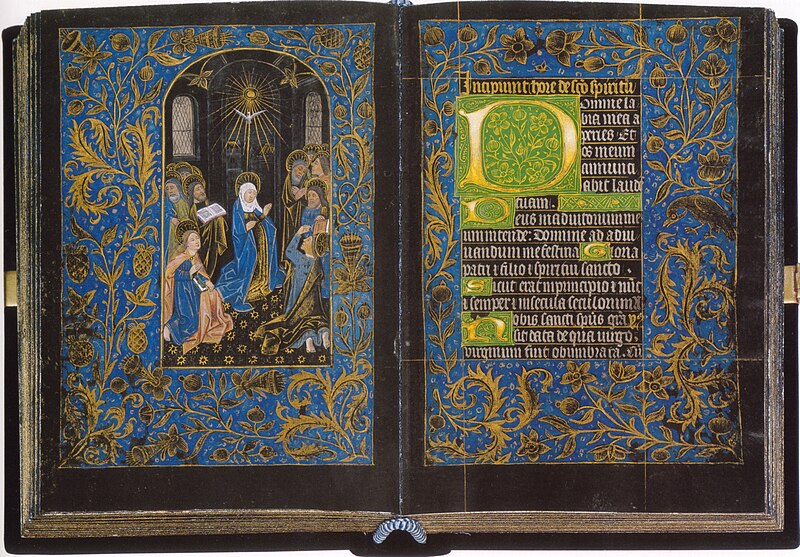 Incipiunt hore de sco spiritu
Domine la
bia mea a
peries Et
os meum
annunti
abit laude
tuam.
Deus in adiutorium me
um intende: Domine ad adiu
uandum me festina Gloria
patri ⁊ filio ⁊ spiritui sancto.
Sicut erat in principio ⁊ nūc
⁊ semper ⁊ in secula seculorum
Nobis sancti spūs gra
sit data de qua virgo
virginum fuit obumbrata.